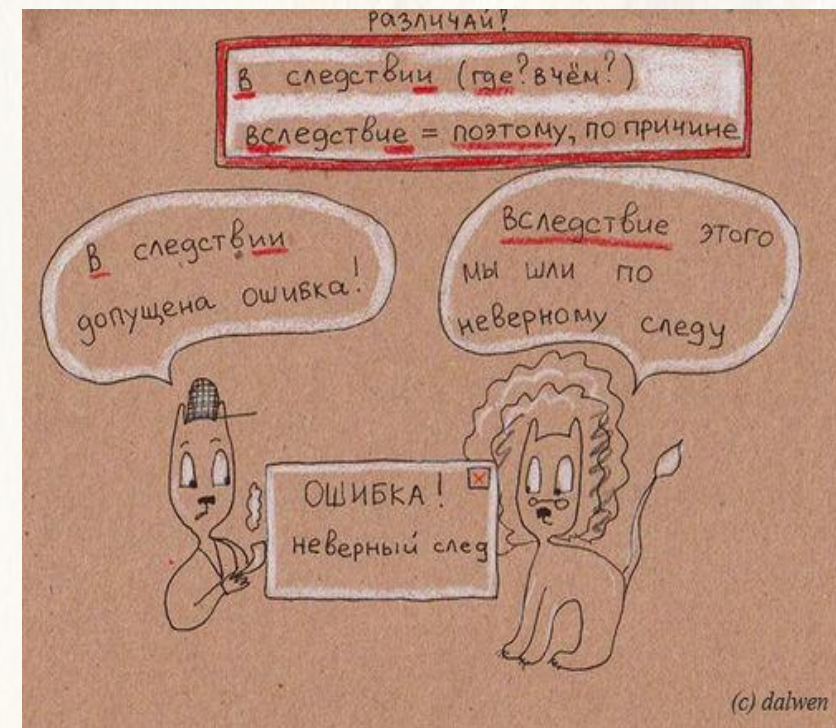 различай!
В следствии (где? в чём?)
вследствие = поэтому, по причине
В следствии
допущена ошибка!
Вследствие этого
мы шли по
неверному следу
ОШИБКА!
неверный след
(c) dalwen